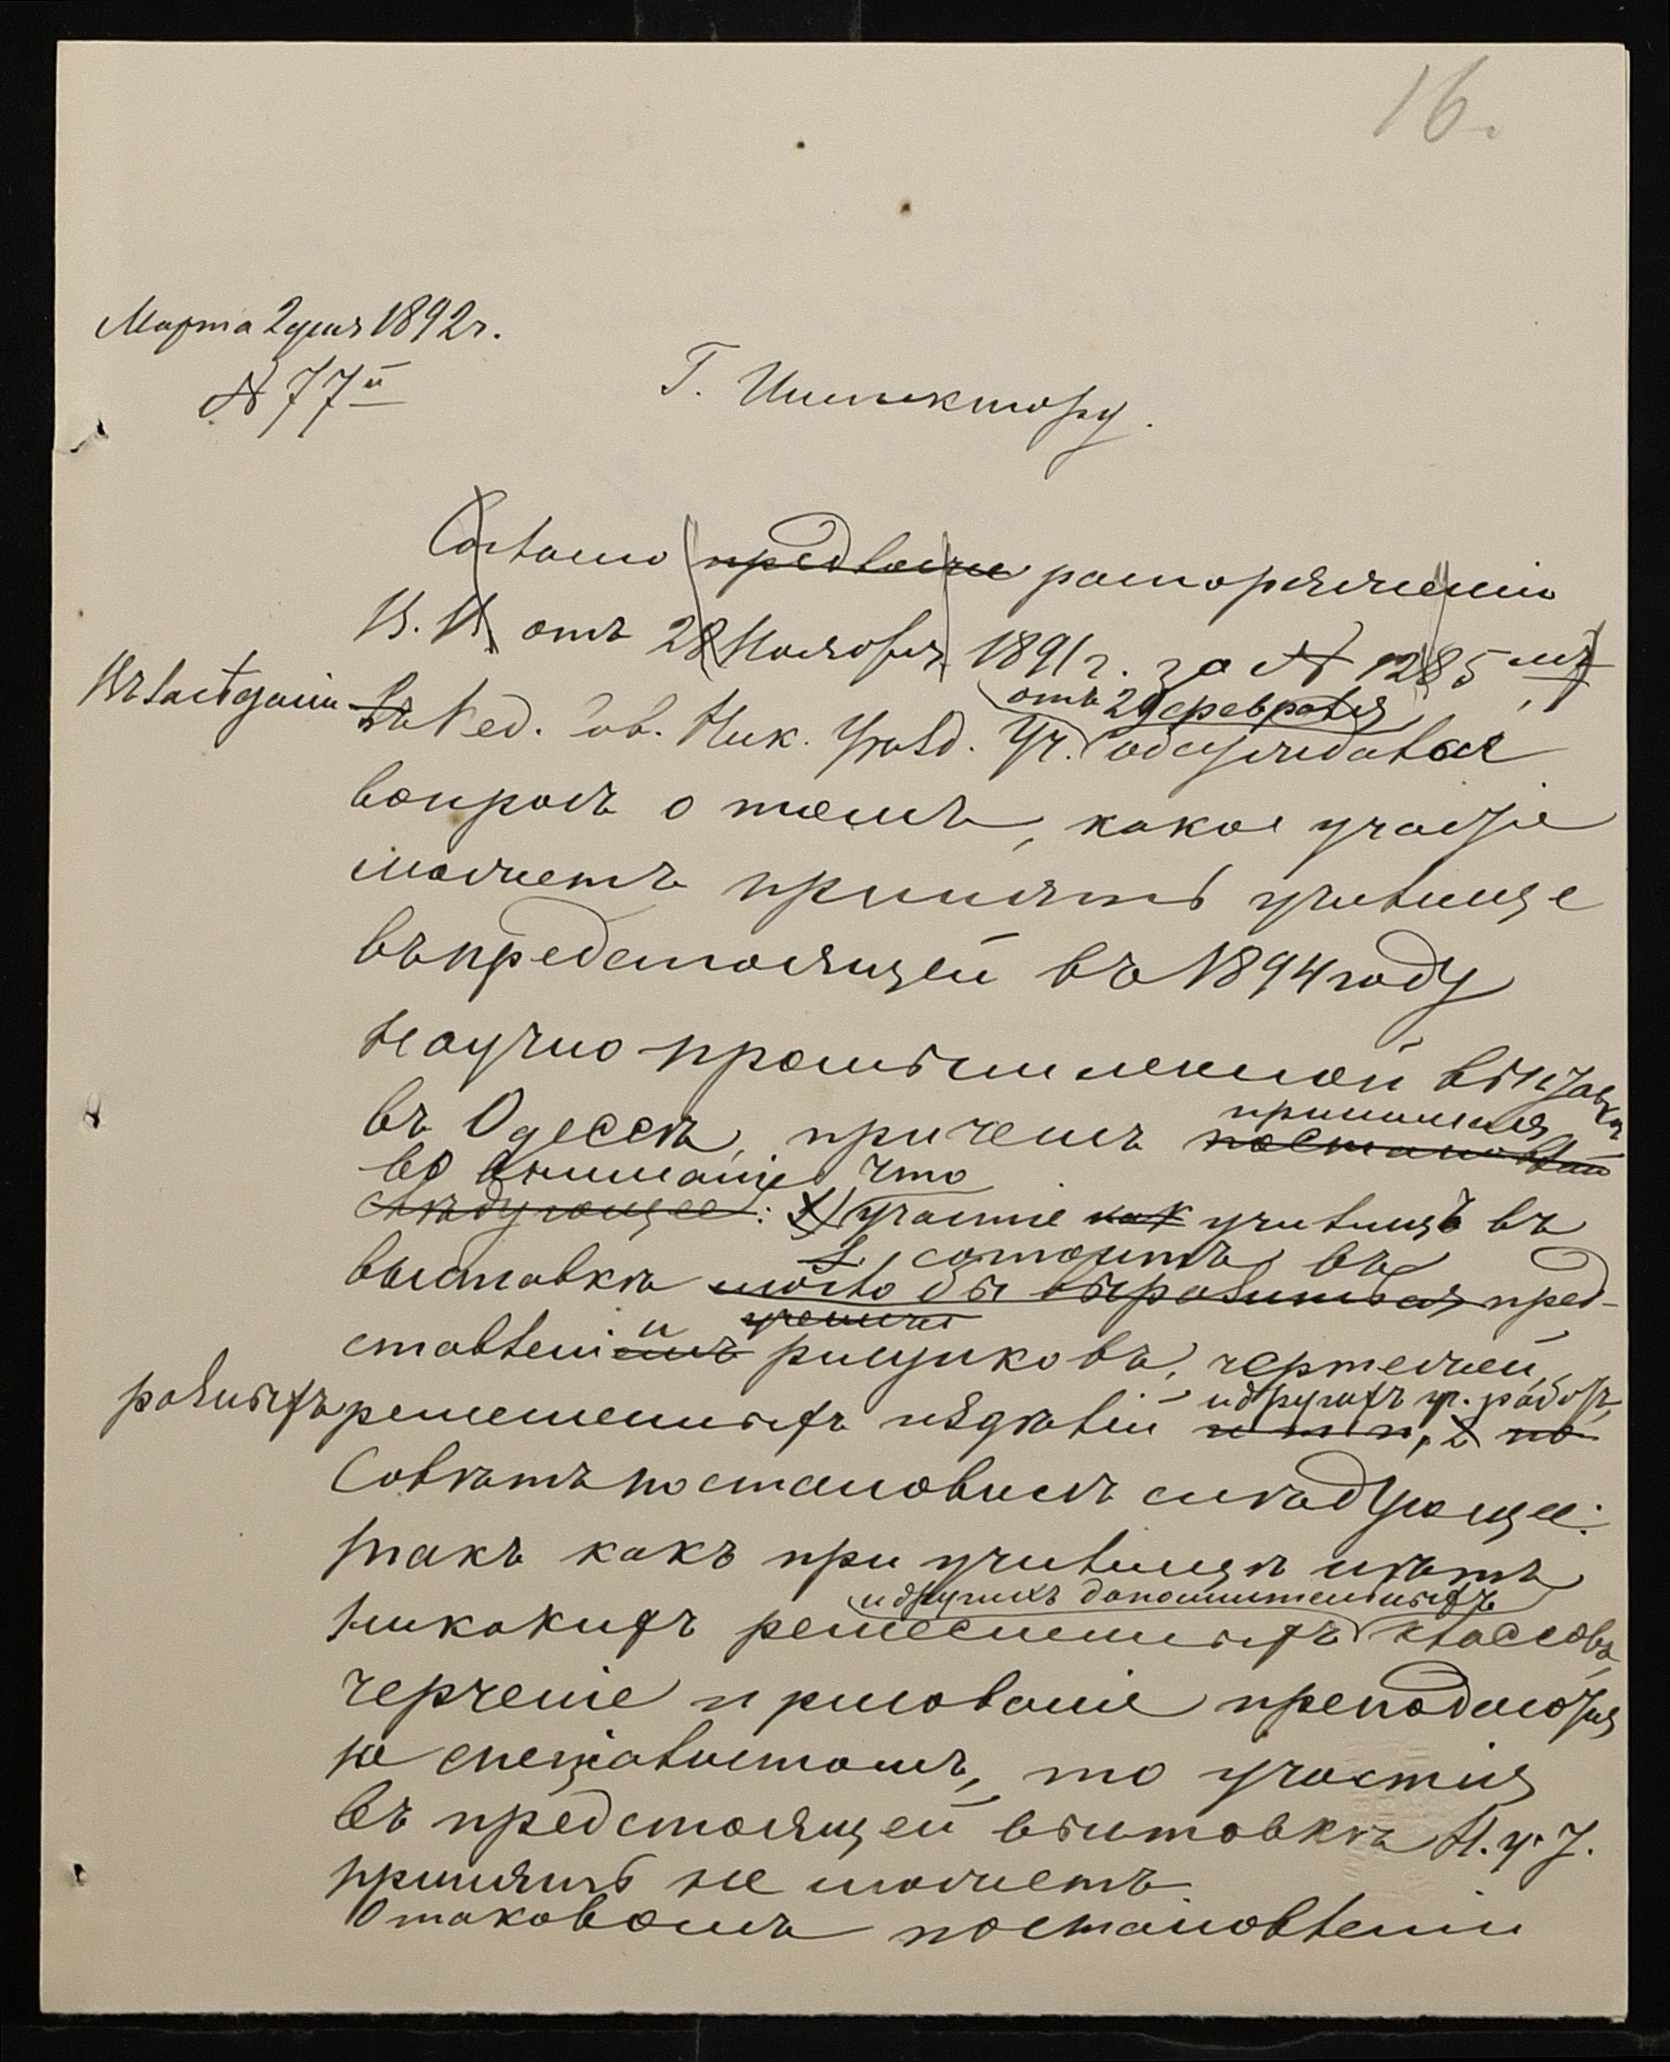 16.
Марта 2 дня 1892 г.
№ 77й
Г. Инспектору.
Согласно предложен распоряженію
В. В. от 28 Ноября 1891 г. за № 1285
Въ засѣданіи въ Пед. Сов. Ник. Уѣзд. Уч. отъ 29 февраля обсуждался
вопросъ о томъ, какое участіе
можетъ принять училище
въ предстоящей въ 1894 году
научно промышленной выставкѣ
въ Одессѣ, причемъ постановлено принимая
во вниманіе что
слѣдующее: 1) участіе как училищъ въ
выставкѣ могло бы выразиться состоитъ въ пред-
ставленіемъ и рисунковъ, чертежей,
разныхъ ремесленныхъ издѣлій и т. п., и другихъ уч. работъ, 2 по
Совѣтъ постановилъ слѣдующее:
такъ какъ при училищѣ нѣтъ
никакихъ ремесленныхъ и другихъ дополнительныхъ классовъ,
черченіе и рисованіе преподаются
не спеціалистомъ, то участія
въ предстоящей выставкѣ Н. у. У.
принять не можетъ.
О таковомъ постановленіи